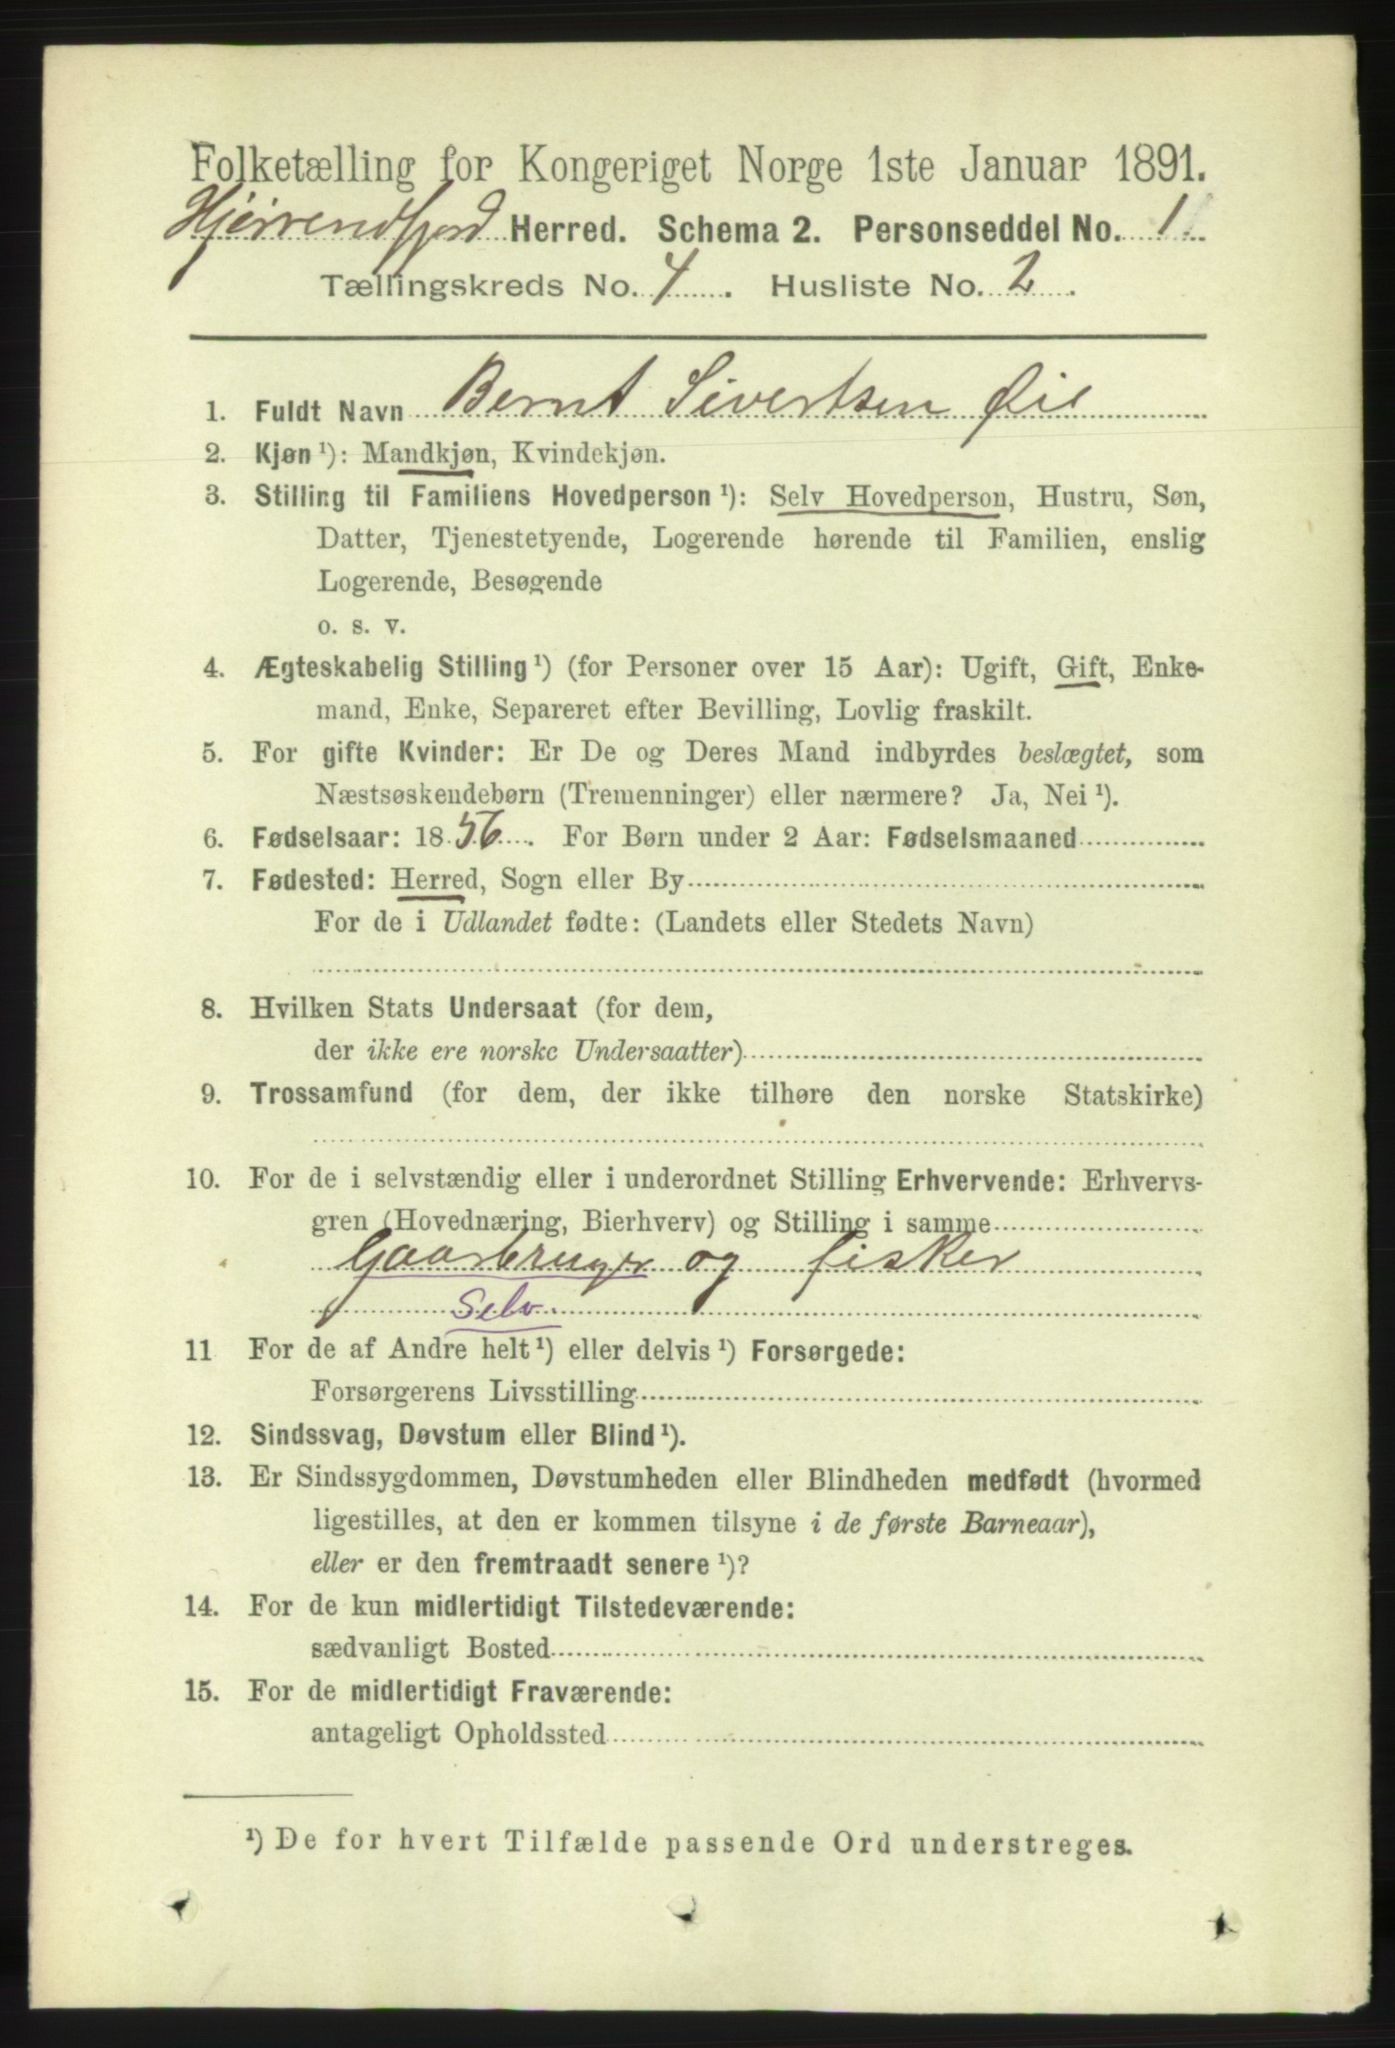 Folketælling for Kongeriget Norge 1ste Januar 1891.
Hjørrendfjord Herred. Schema 2. Personseddel No. 1
Tællingskreds No. 4. Husliste No. 2.
1. Fuldt Navn Bernt Sivertsen Øie
2. Kjøn ¹): Mandkjøn, Kvindekjøn.
3. Stilling til Familiens Hovedperson ¹): Selv Hovedperson, Hustru, Søn,
Datter, Tjenestetyende, Logerende hørende til Familien, enslig
Logerende, Besøgende
o. s. v.
4. Ægteskabelig Stilling ¹) (for Personer over 15 Aar): Ugift, Gift, Enke-
mand, Enke, Separeret efter Bevilling, Lovlig fraskilt.
5. For gifte Kvinder: Er De og Deres Mand indbyrdes beslægtet, som
Næstsøskendebørn (Tremenninger) eller nærmere? Ja, Nei ¹).
6. Fødselsaar: 1856. For Børn under 2 Aar: Fødselsmaaned
7. Fødested: Herred, Sogn eller By
For de i Udlandet fødte: (Landets eller Stedets Navn)
8. Hvilken Stats Undersaat (for dem,
der ikke ere norske Undersaatter)
9. Trossamfund (for dem, der ikke tilhøre den norske Statskirke)
10. For de i selvstændig eller i underordnet Stilling Erhvervende: Erhvervs-
gren (Hovednæring, Bierhverv) og Stilling i samme
Gaarbruger og fisker
Selv
11 For de af Andre helt ¹) eller delvis ¹) Forsørgede:
Forsørgerens Livsstilling
12. Sindssvag, Døvstum eller Blind ¹).
13. Er Sindssygdommen, Døvstumheden eller Blindheden medfødt (hvormed
ligestilles, at den er kommen tilsyne i de første Barneaar),
eller er den fremtraadt senere ¹)?
14. For de kun midlertidigt Tilstedeværende:
sædvanligt Bosted
15. For de midlertidigt Fraværende:
antageligt Opholdssted
¹) De for hvert Tilfælde passende Ord understreges.